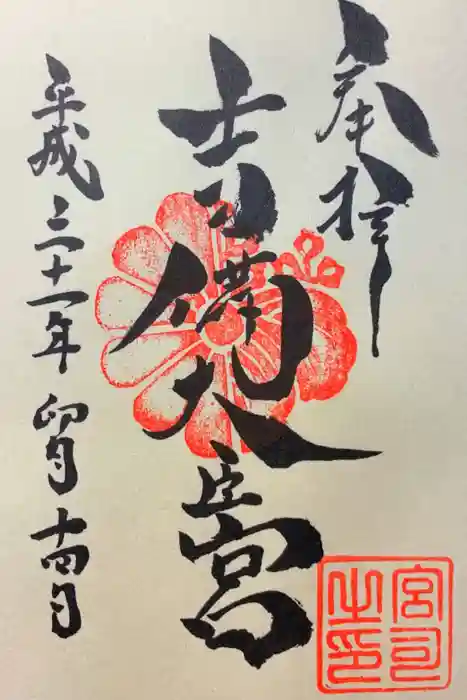 奉拝
吉備大臣宮
平成三十一年 卯月 十四日
宮司之印